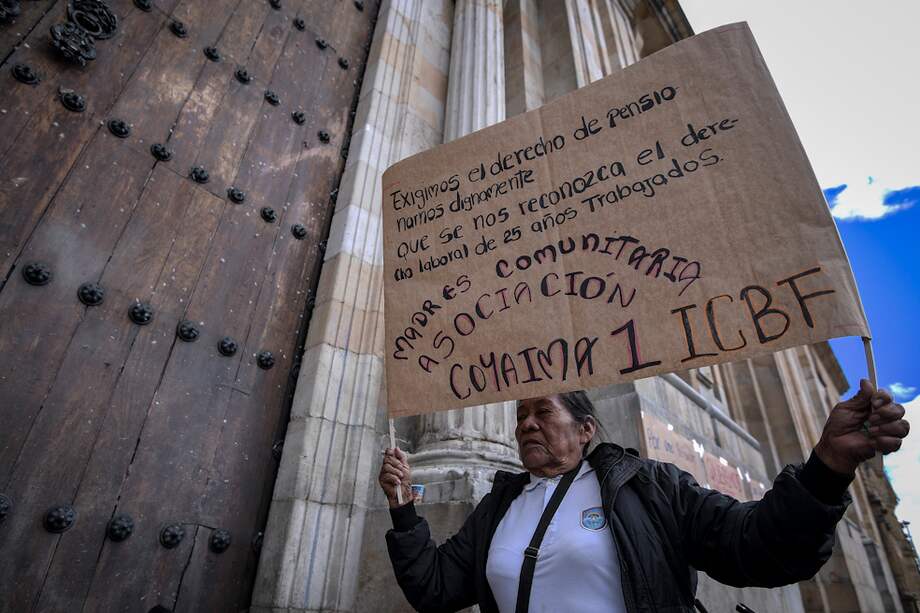 Exigimos el derecho de pensio
narnos dignamente
que se nos reconozca el dere-
cho laboral de 25 años Trabajados.
MADRES COMUNITARIA
ASOCIACIÓN
COYAIMA 1 ICBF